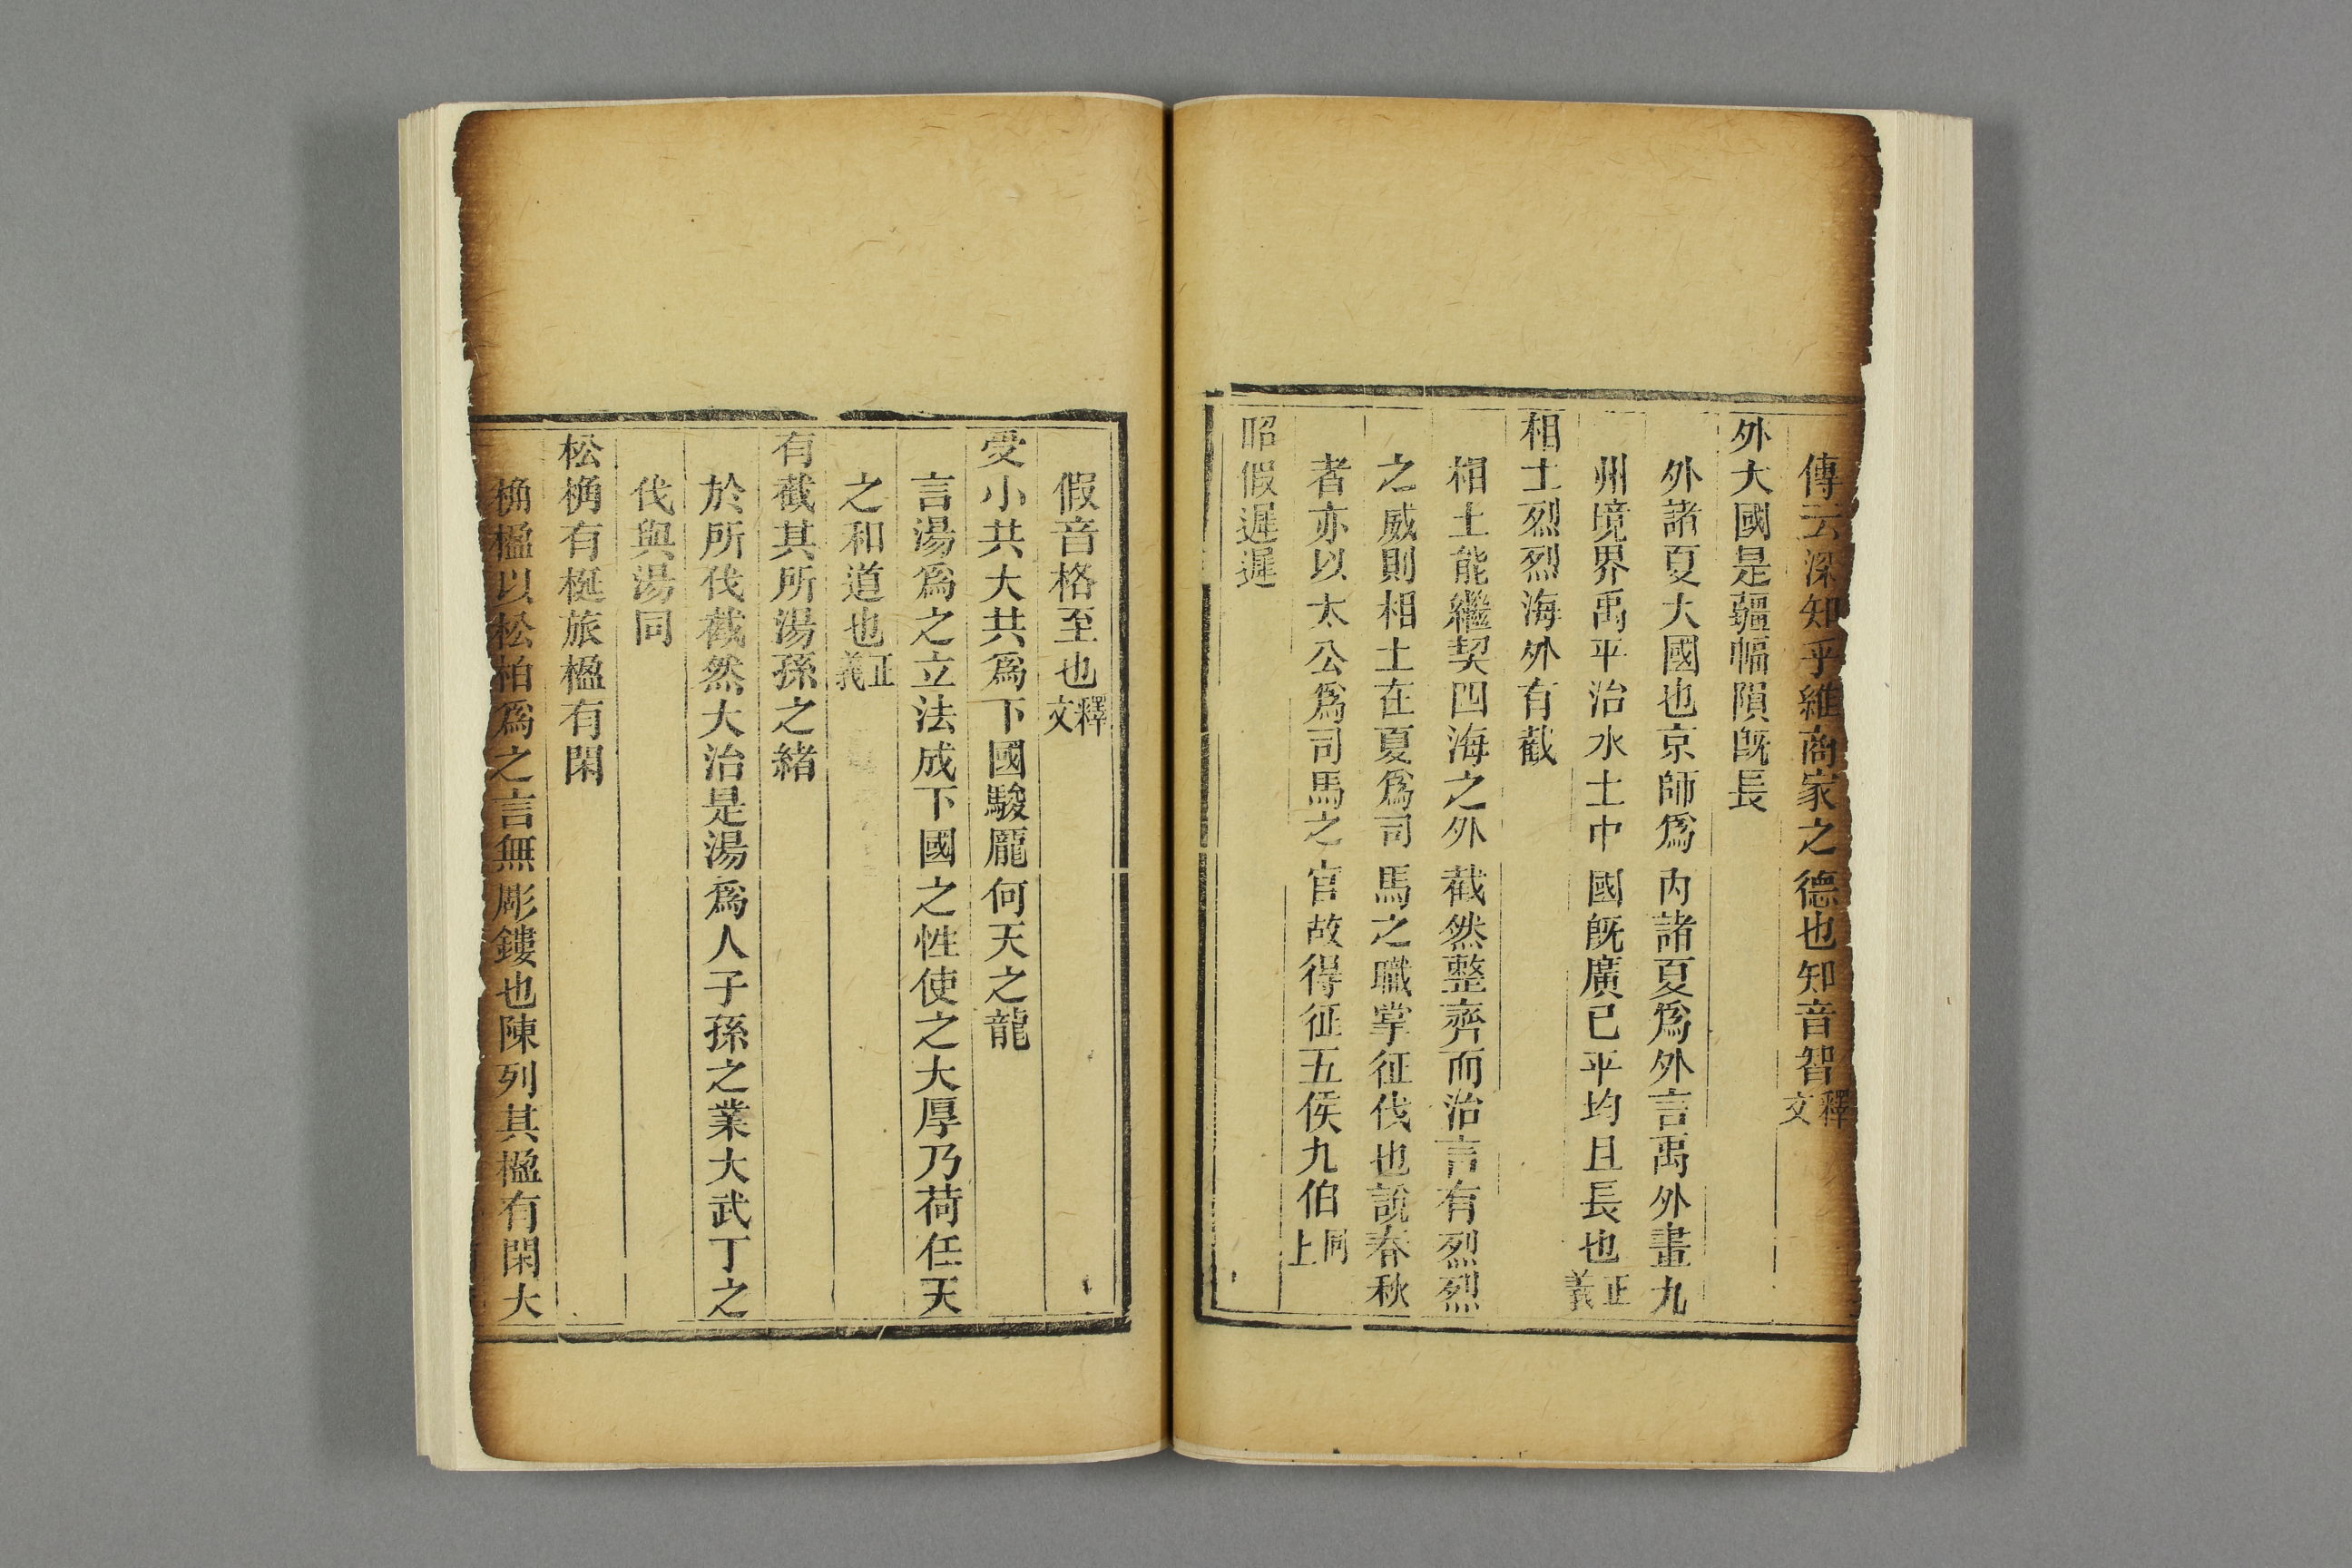 傳云深知乎維商家之德也知音智釋文
外大國是疆幅隕旣長
外諸夏大國也京師爲內諸夏爲外言禹外畫九
州境界禹平治水土中國旣廣已平均且長也正義
相土烈烈海外有截
相土能繼契四海之外截然整齊而治言有烈烈
之威則相土在夏爲司馬之職掌征伐也說春秋
者亦以太公爲司馬之官故得征五侯九伯同上
昭假遲遲
假音格至也釋文
受小共大共爲下國駿厖何天之龍
言湯爲之立法成下國之性使之大厚乃荷任天
之和道也正義
有截其所湯孫之緖
於所伐截然大治是湯爲人子孫之業大武丁之
伐與湯同
松桷有梴旅楹有閑
桷楹以松柏爲之言無彫鏤也陳列其楹有閑大